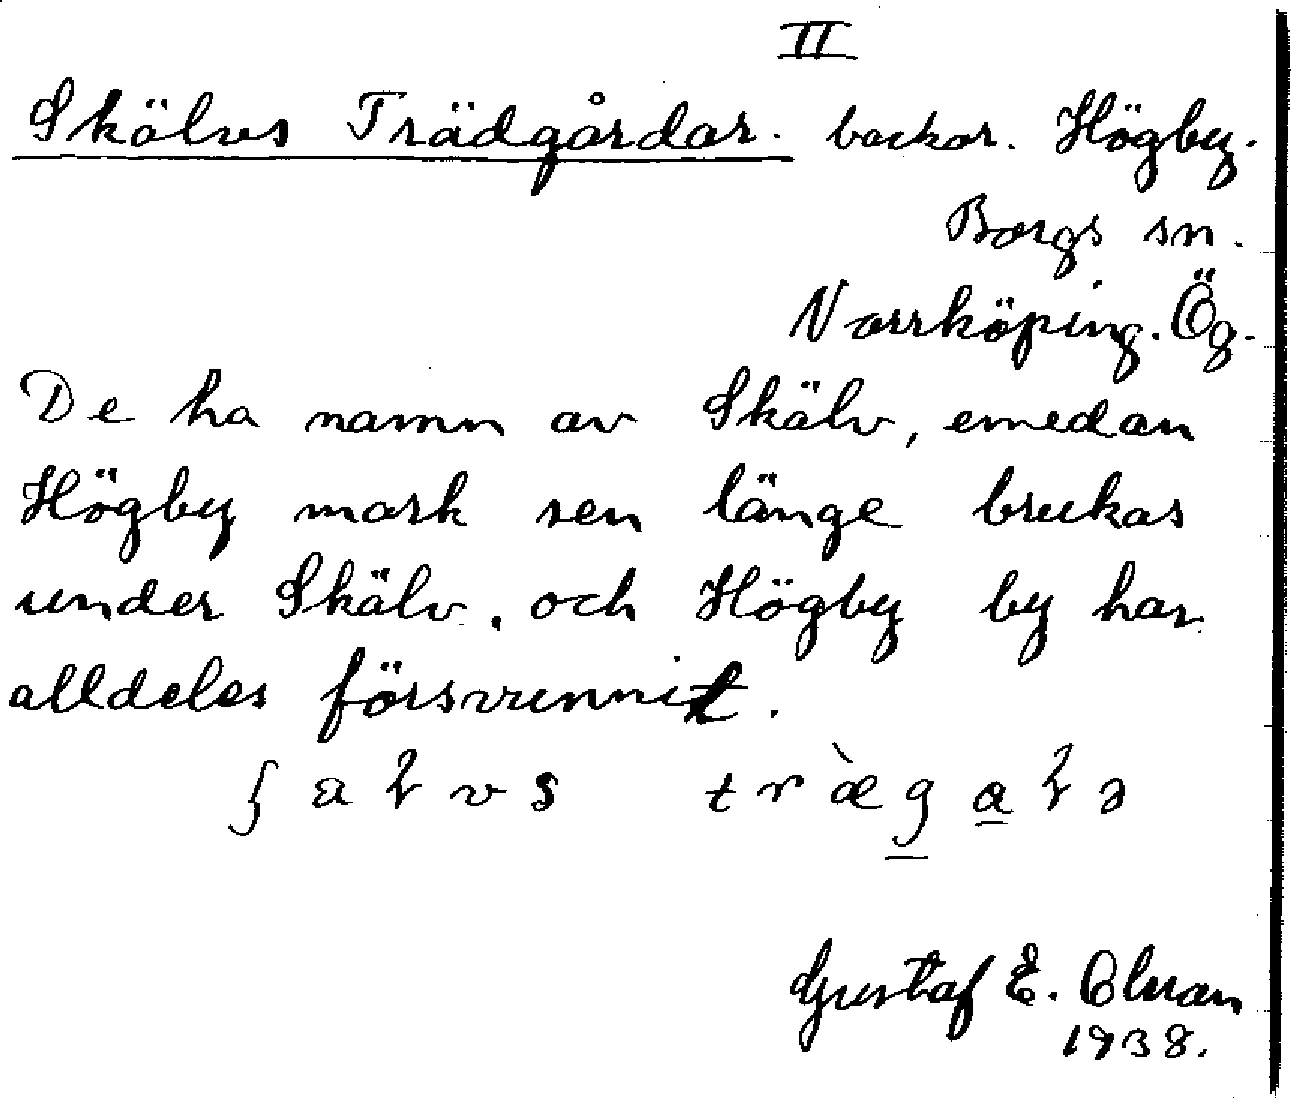 II
Skälvs Trädgårdar. backar. Högby.
Borgs sn.
Norrköping. Ög.
De ha namn av Skälv, emedan
Högby mark sen länge brukas
under Skälv, och Högby by har
alldeles försvunnit.
Gustaf E. Olman
1938.